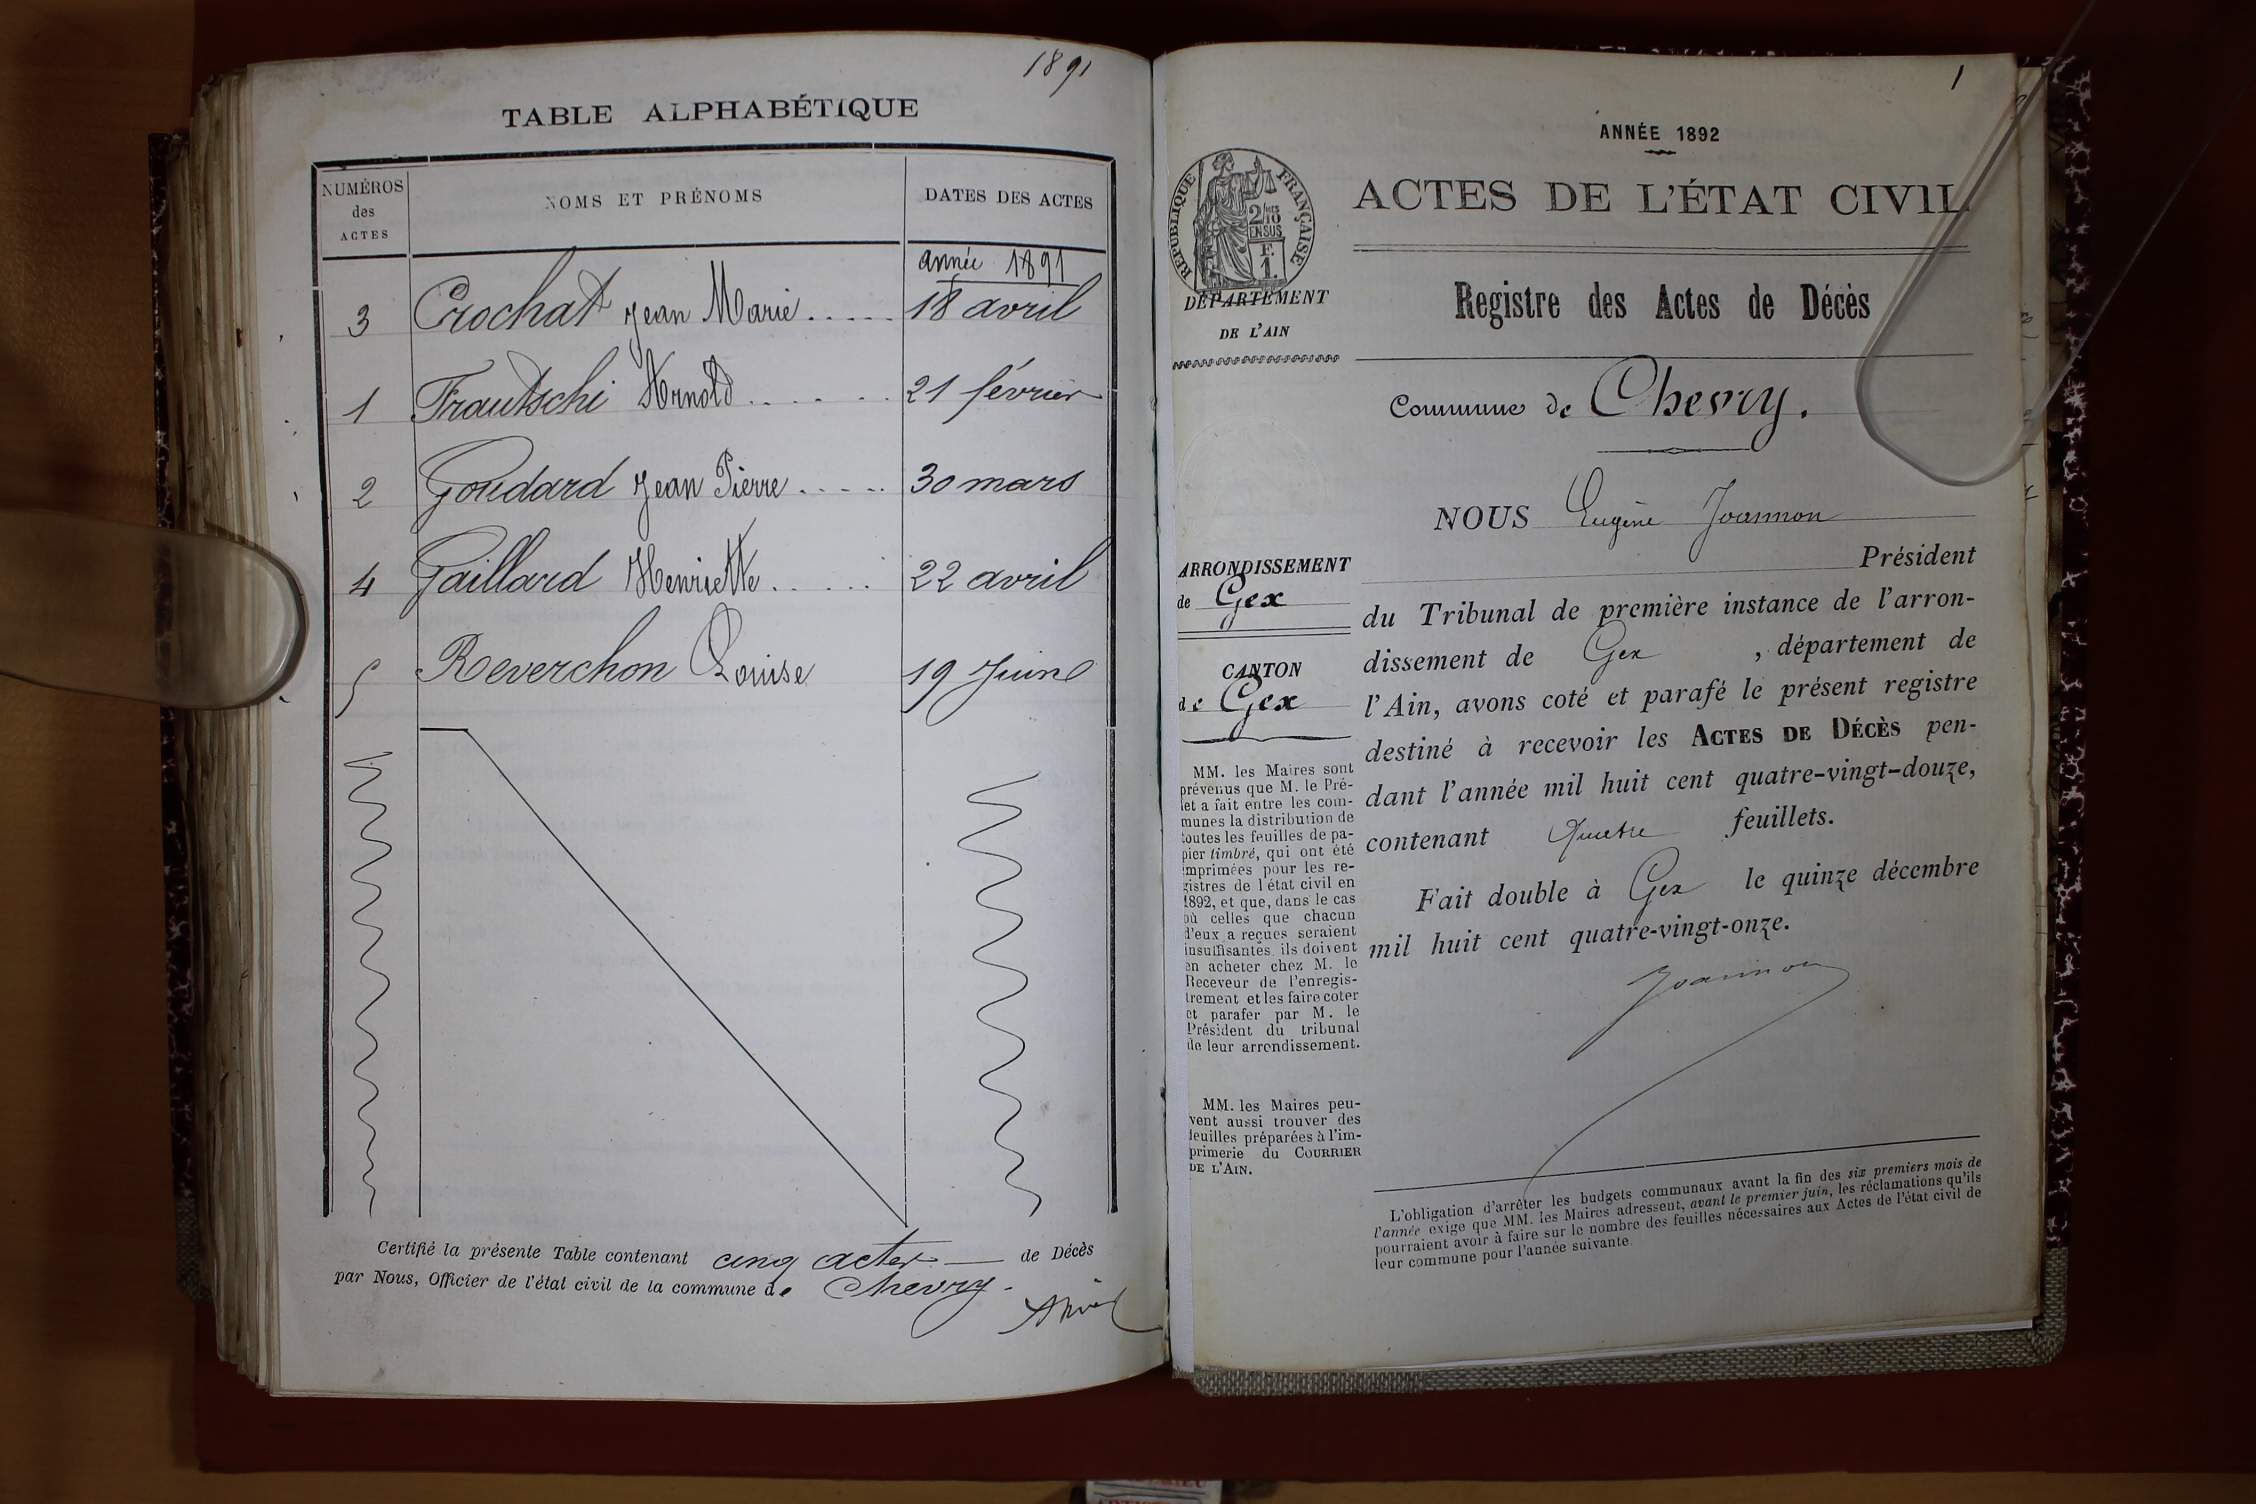 1891
TABLE ALPHABÉTIQUE
NUMÉROS
des
ACTES
NOMS ET PRÉNOMS
DATES DES ACTES
année 1891
3 Crochat Jean Marie ..... 18 avril
1 Frautschi Arnold ...... 21 février
2 Goudard Jean Pierre ..... 30 mars
4 Gaillard Henriette ...... 22 avril
5 Reverchon Louise 19 Juin
Certifié la présente Table contenant cinq actes de Décès
par Nous, Officier de l'état civil de la commune de Chevry.
1
ANNÉE 1892
RÉPUBLIQUE FRANÇAISE
2/10
EN SUS
F.
1.
ACTES DE L'ÉTAT CIVIL
DÉPARTEMENT
DE L'AIN
Registre des Actes de Décès
Commune de Chevry.
NOUS Eugène Joannon
Président
du Tribunal de première instance de l'arron-
dissement de Gex, département de
l'Ain, avons coté et parafé le présent registre
destiné à recevoir les ACTES DE DÉCÈS pen-
dant l'année mil huit cent quatre-vingt-douze,
contenant Quatre feuillets.
Fait double à Gex le quinze décembre
mil huit cent quatre-vingt-onze.
Joannon
ARRONDISSEMENT
de Gex
CANTON
de Gex
MM. les Maires sont
prévenus que M. le Pré-
fet a fait entre les com-
munes la distribution de
toutes les feuilles de pa-
pier timbré, qui ont été
imprimées pour les re-
gistres de l'état civil en
1892, et que, dans le cas
où celles que chacun
d'eux a reçues seraient
insuffisantes, ils doivent
en acheter chez M. le
Receveur de l'enregis-
trement et les faire coter
et parafer par M. le
Président du tribunal
de leur arrondissement.
MM. les Maires peu-
vent aussi trouver des
feuilles préparées à l'im-
primerie du COURRIER
DE L'AIN.
L'obligation d'arrêter les budgets communaux avant la fin des six premiers mois de
l'année exige que MM. les Maires adressent, avant le premier juin, les réclamations qu'ils
pourraient avoir à faire sur le nombre des feuilles nécessaires aux Actes de l'état civil de
leur commune pour l'année suivante.